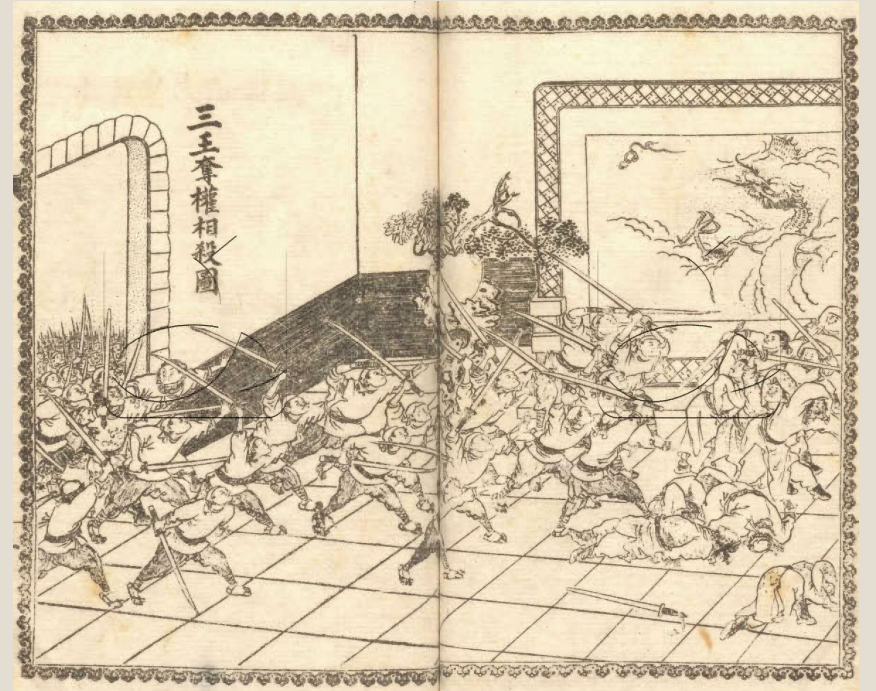 三王奪權相殺圖